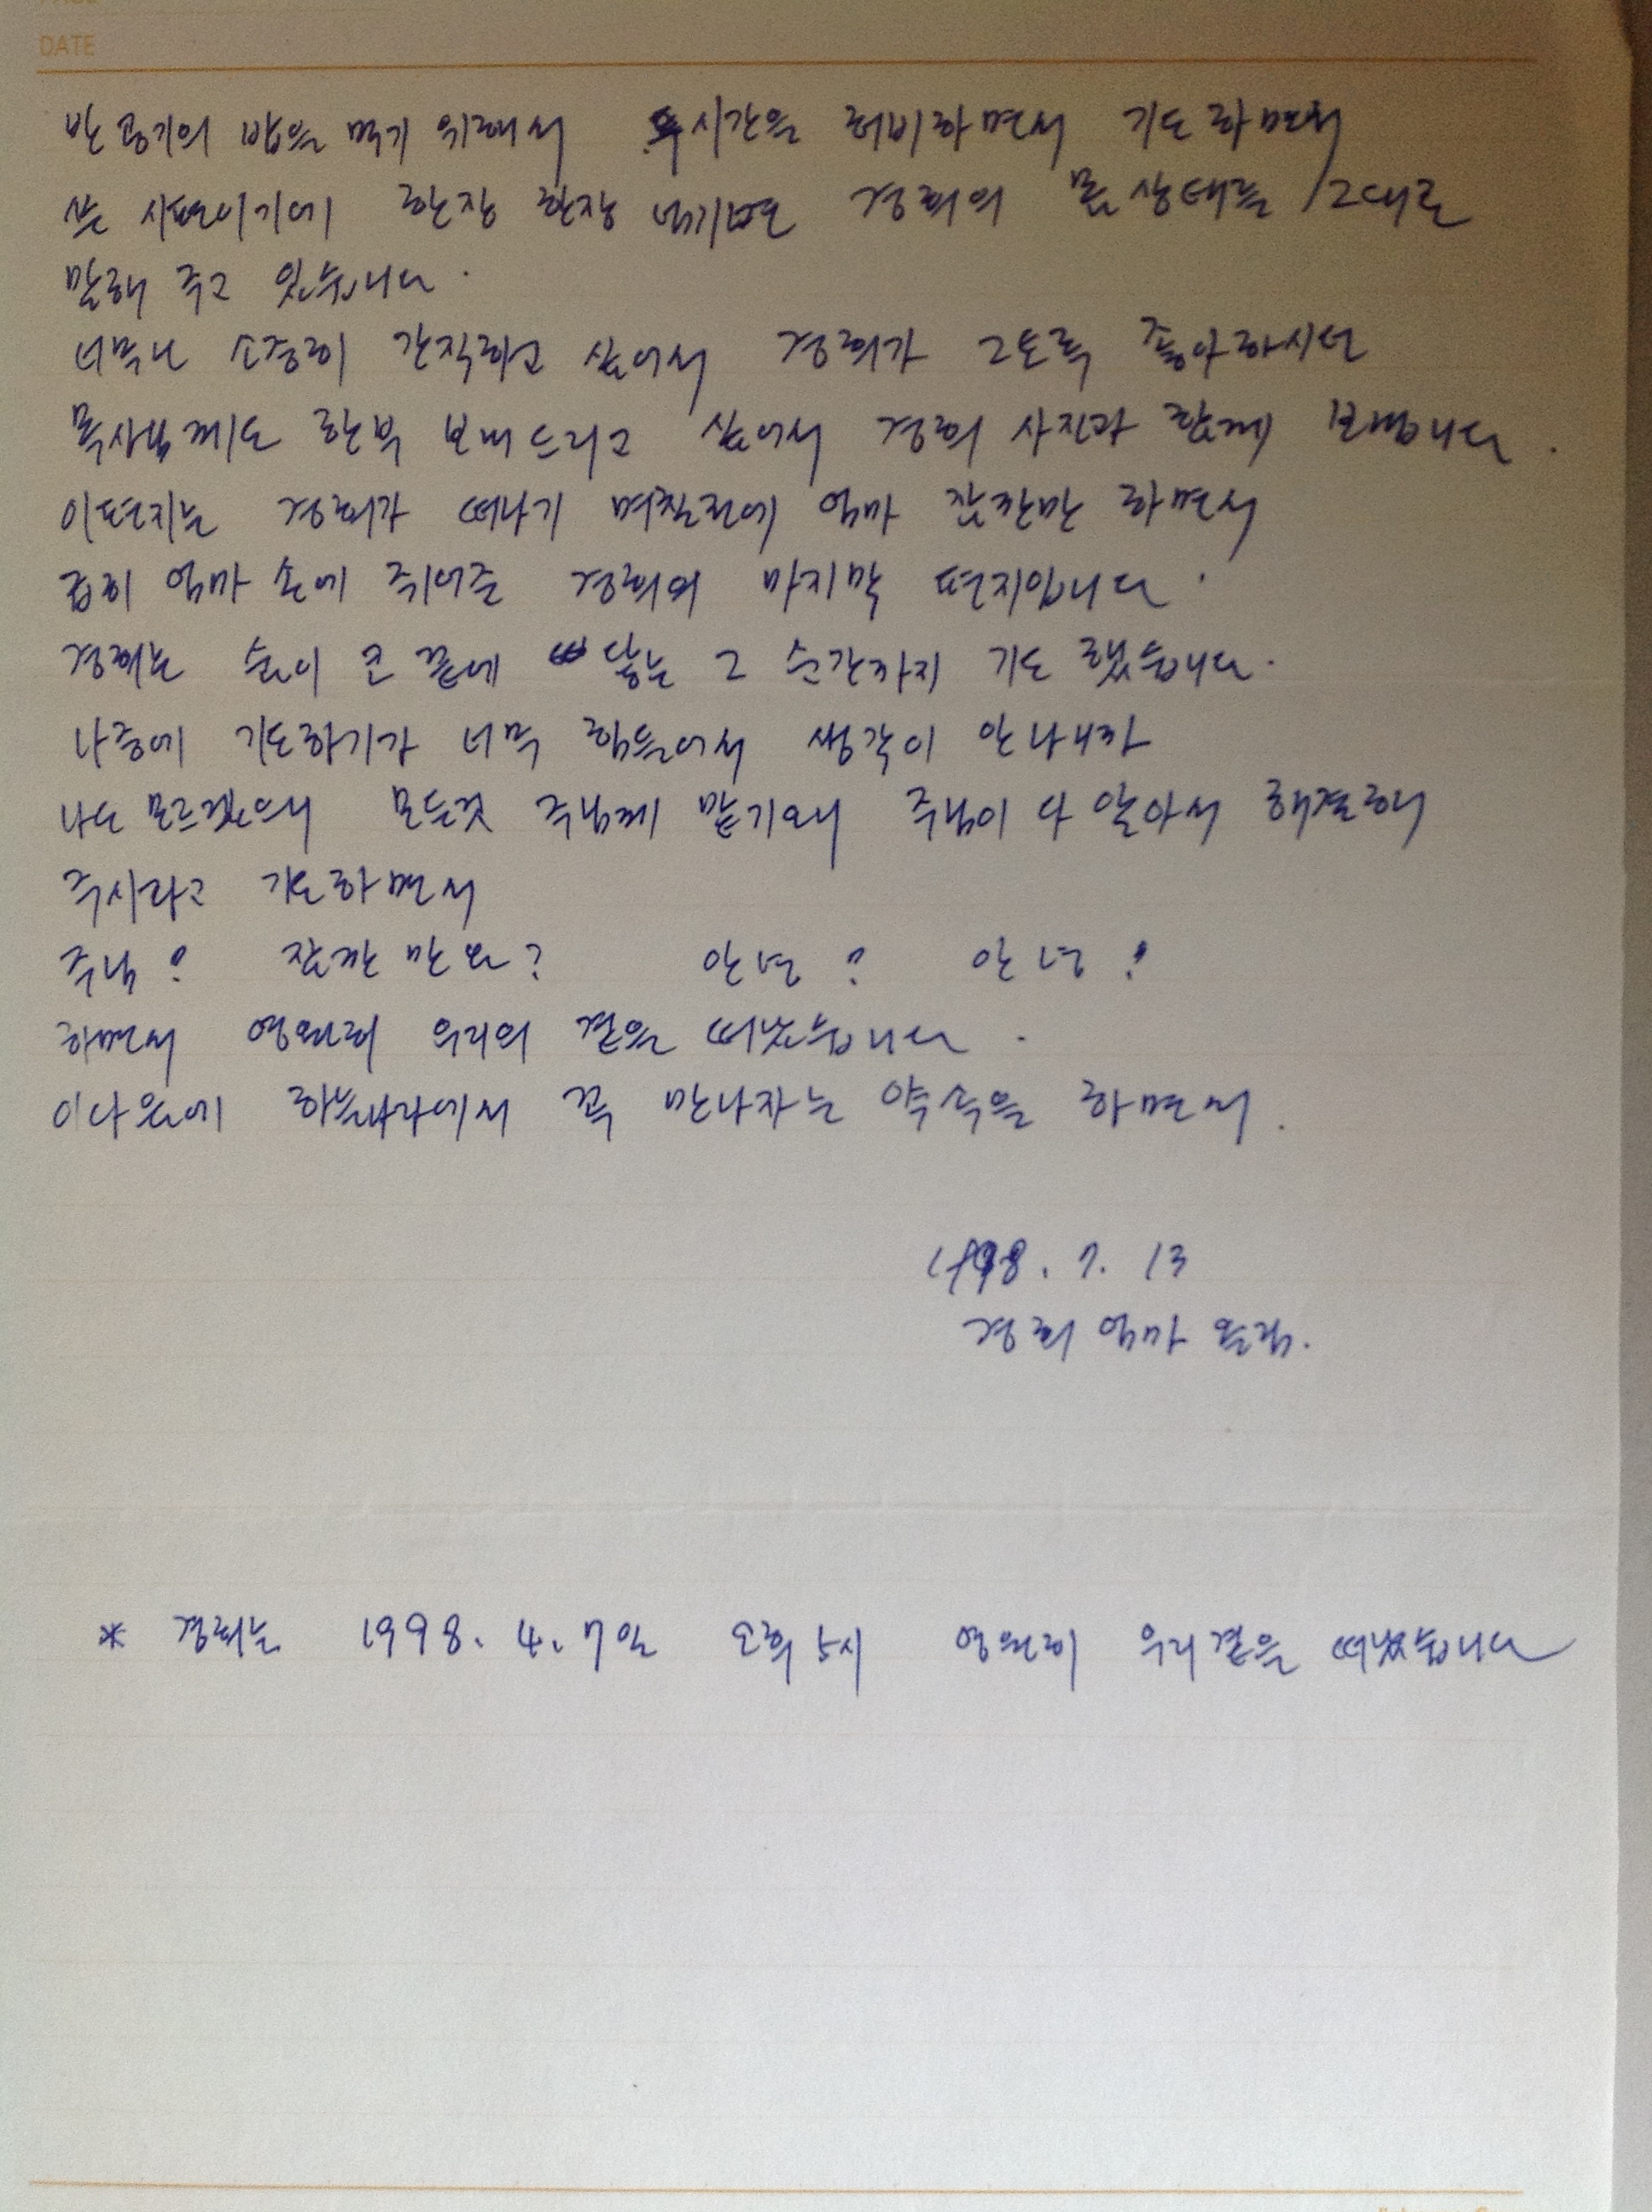 DATE
반공기의 밥을 먹기 위해서 두시간을 허비하면서 기도하면서
쓴 시편이기에 한장 한장 넘기면 경희의 몸 상태를 그대로
말해 주고 있습니다.
너무나 소중히 간직하고 싶어서 경희가 그토록 좋아하시던
목사님께도 한부 보내드리고 싶어서 경희 사진과 함께 보냅니다.
이편지는 경희가 떠나기 며칠전에 엄마 잠깐만 하면서
급히 엄마 손에 쥐어준 경희의 마지막 편지입니다.
경희는 숨이 끝에 닿는 그 순간까지 기도 했습니다.
나중에 기도하기가 너무 힘들어서 생각이 안나니까
나도 모르겠으니 모든것 주님께 맡기오니 주님이 다 알아서 해결해
주시라고 기도하면서
주님? 잠깐만요? 안녕? 안녕?
하면서 영원히 우리의 곁을 떠났습니다.
이다음에 하늘나라에서 꼭 만나자는 약속을 하면서.
1998. 7. 13
경희 엄마 드림.
* 경희는 1998. 4. 7일 오후 5시 영원히 우리곁을 떠났습니다